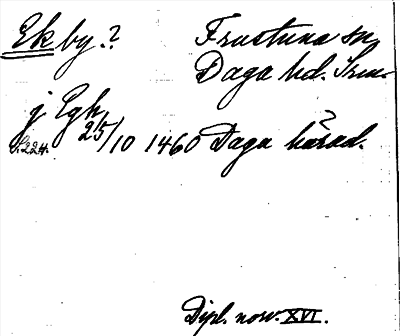 Ekby.? Frustuna sn,
Daga hd.
j Egby
25/10 1460 Daga härad.
S. 224.
Dipl. norv. XVI.